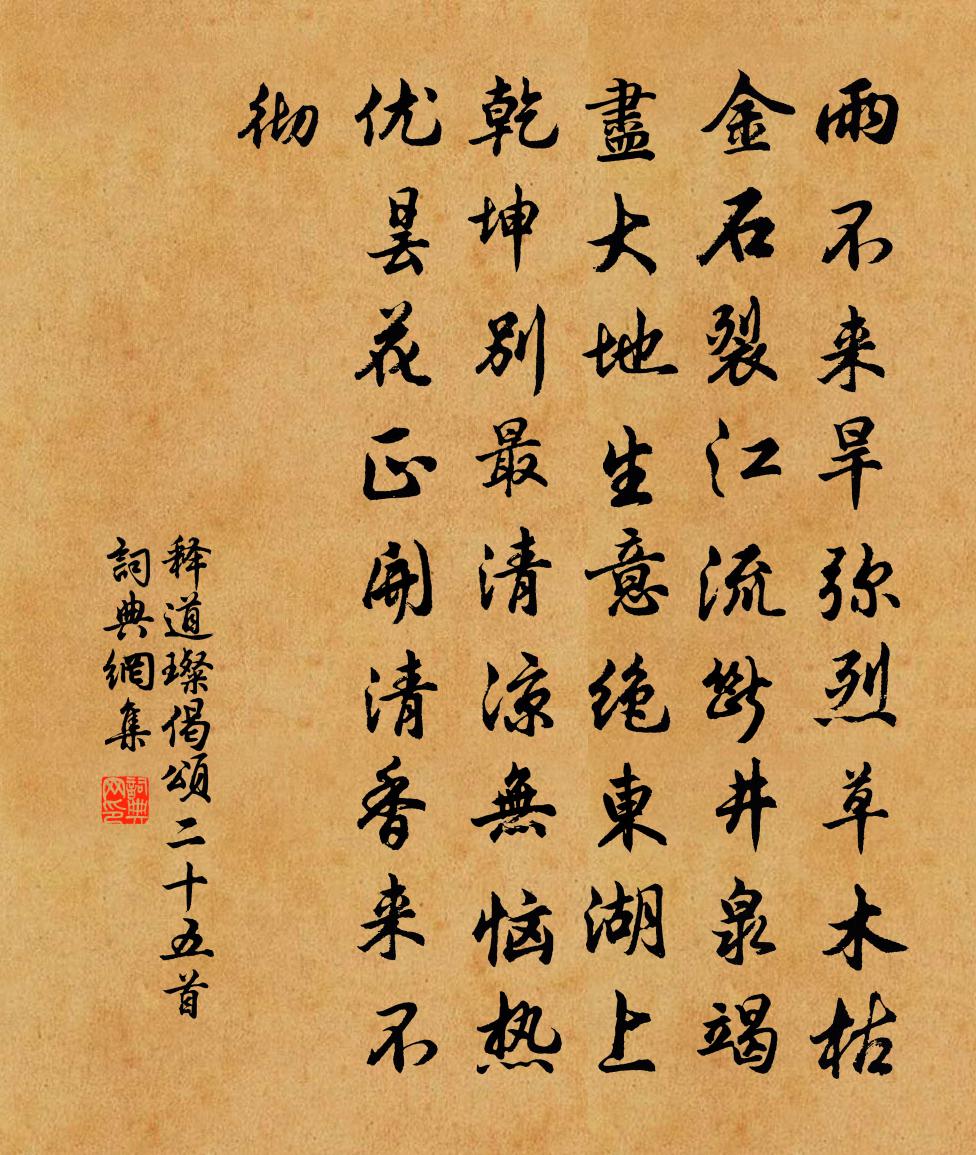 雨不来旱弥烈草木枯
金石裂江流断井泉竭
盡大地生意绝東湖上
乾坤別最清凉無恼热
优昙花正開清香来不
彻
释道璨偈頌二十五首
詞典網集
詞典网印